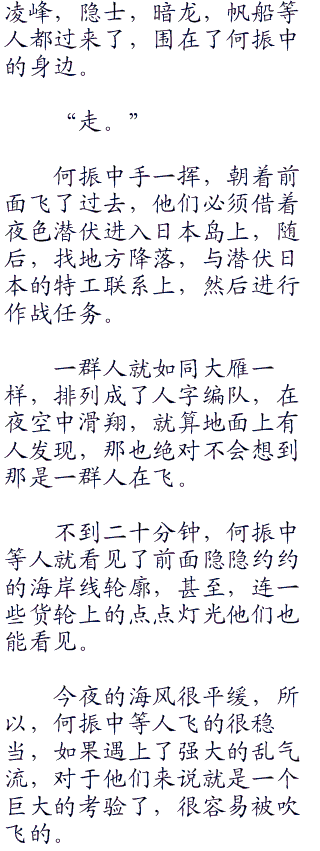 凌峰，隐士，暗龙，帆船等
人都过来了，围在了何振中
的身边。
“走。”
何振中手一挥，朝着前
面飞了过去，他们必须借着
夜色潜伏进入日本岛上，随
后，找地方降落，与潜伏日
本的特工联系上，然后进行
作战任务。
一群人就如同大雁一
样，排列成了人字编队，在
夜空中滑翔，就算地面上有
人发现，那也绝对不会想到
那是一群人在飞。
不到二十分钟，何振中
等人就看见了前面隐隐约约
的海岸线轮廓，甚至，连一
些货轮上的点点灯光他们也
能看见。
今夜的海风很平缓，所
以，何振中等人飞的很稳
当，如果遇上了强大的乱气
流，对于他们来说就是一个
巨大的考验了，很容易被吹
飞的。